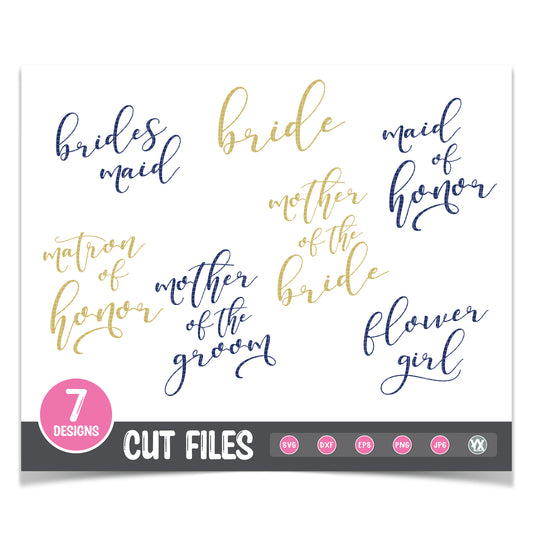 brides
maid
bride
maid
of
honor
matron
of
honor
mother
of the
groom
mother
of the
bride
flower
girl
7
DESIGNS
CUT FILES
SVG
DXF
EPS
PNG
JPG